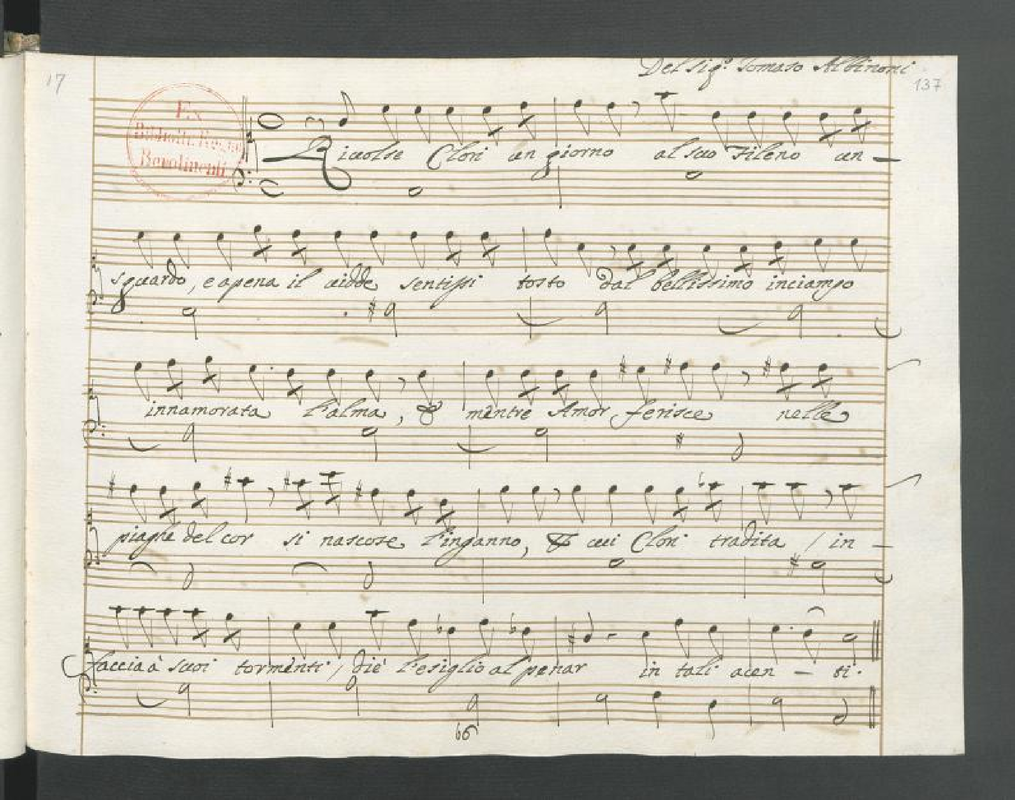 Del Sig.r Tomaso Albinoni
17
137
Ex
Biblioth. Regia
Berolinensi.
Rivolse Clori un giorno al suo Fileno un
sguardo, e apena il vidde sentissi tosto dal bellissimo inciampo
innamorata l'alma, & mentre Amor ferisce nelle
piaghe del cor si nascose l'inganno, & cui Clori tradita / in
faccia à suoi tormenti / diè l'esiglio al penar in tali acen - ti.
66